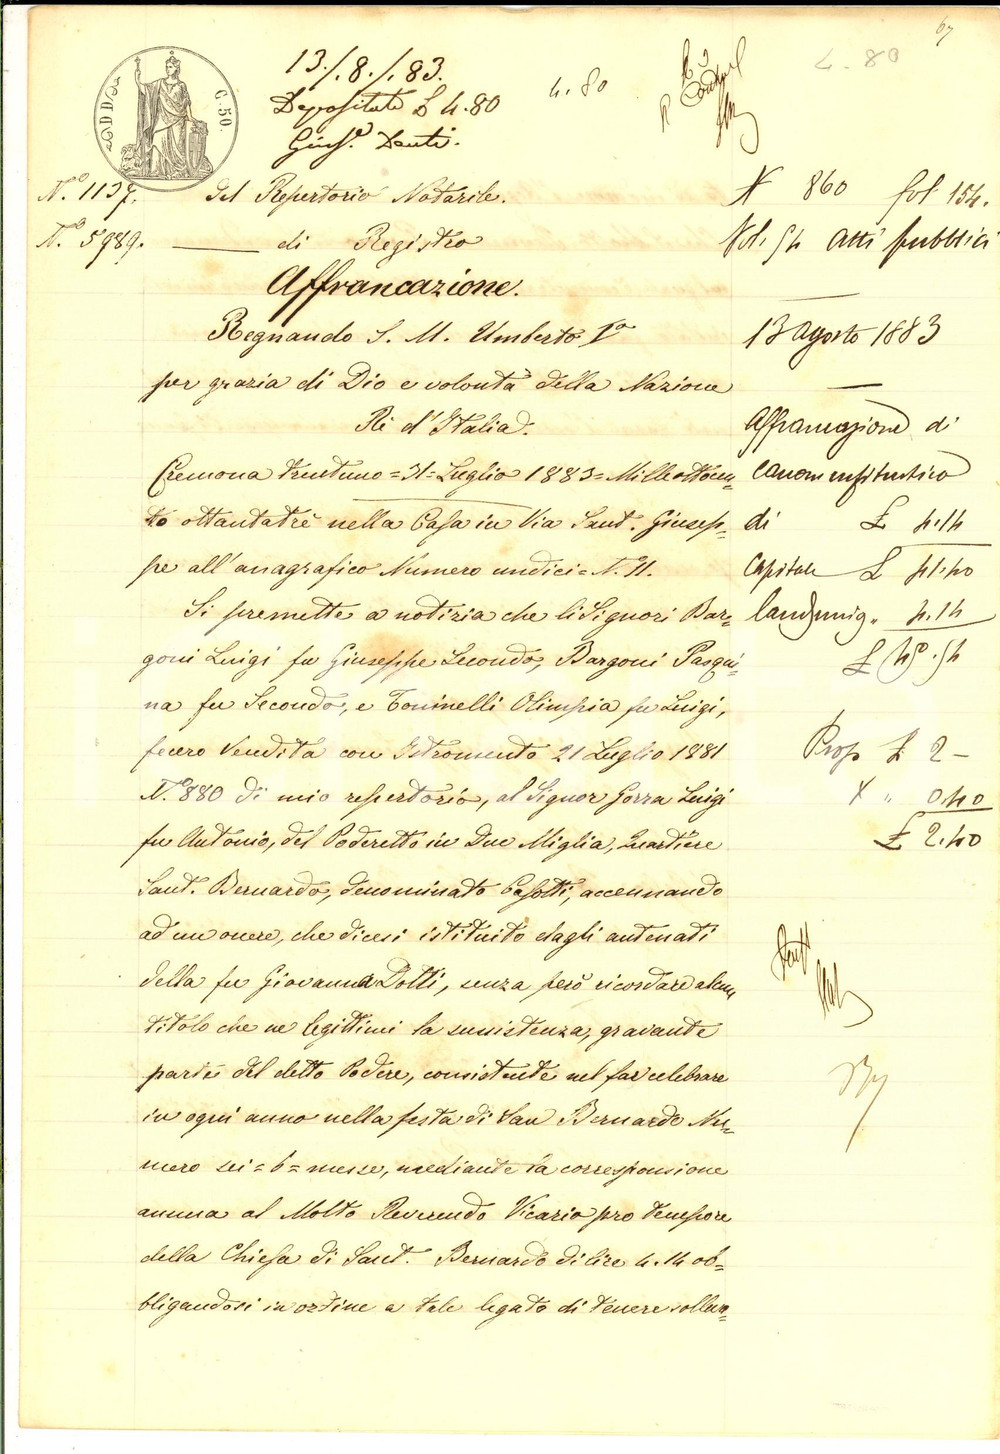 67
13./.8./.83.
Depositate £ 4.80
4.80
4.80
C. 50.
N.° 1137. del Repertorio Notarile.
N.° 5989. di Registro
Affrancazione.
Regnando S. M. Umberto I°
per grazia di Dio e volontà della Nazione
Rè d'Italia.
Cremona trentuno = 31 = Luglio 1883 = Milleottocen=
to ottantatrè nella Casa in Via Sant. Giusep=
pe all'anagrafico Numero undici = N. 11.
Si premette a notizia che li Signori Bar=
goni Luigi fu Giuseppe Secondo, Bargoni Pasqui=
na fu Secondo, e Toninelli Olimpia fu Luigi,
fecero Vendita con Istromento 21 Luglio 1881
N.° 880 di mio repertorio, al Signor Gorra Luigi
fu Antonio, del Poderetto in Due Miglia, Quartiere
Sant. Bernardo, denominato Casotti, accennando
ad un onere, che dicesi istituito dagli antenati
della fu Giovanna Dotti, senza però ricordare alcun
titolo che ne legittimi la sussistenza, gravante
parte del detto Podere, consistente nel far celebrare
in ogni anno nella festa di San Bernardo Nu=
mero sei = 6 = messe, mediante la corresponsione
annua al Molto Reverendo Vicario pro tempore
della Chiesa di Sant. Bernardo di lire 4.14 ob=
bligandosi in ordine a tale legato di tenere solleva=
N 860 fol 154.
Vol. 54 Atti pubblici
13 agosto 1883
Affrancazione di
canone enfiteutico
di £ 4.14
Capitale £ 41.40
Laudemio " 4.14
£ 45.54
Prop £ 2 –
X " 0.40
£ 2.40